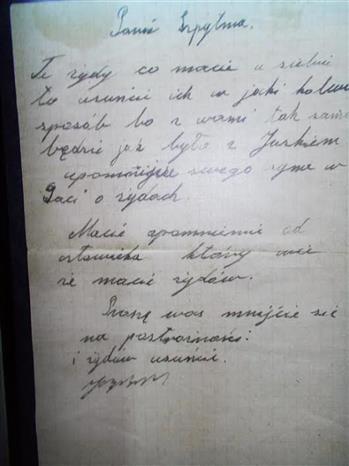 Panie Szpytma.
Te żydy co macie u siebie
to usuńcie ich w jaki kolwie
sposób bo z wami tak samo
będzie jak było z Jurkiem
upomnijcie swego syna w
Gaci o żydach.
Macie upomnienie od
człowieka który wie
że macie żydów.
Proszę was miejcie się
na postrożności
i żydów usuńcie.